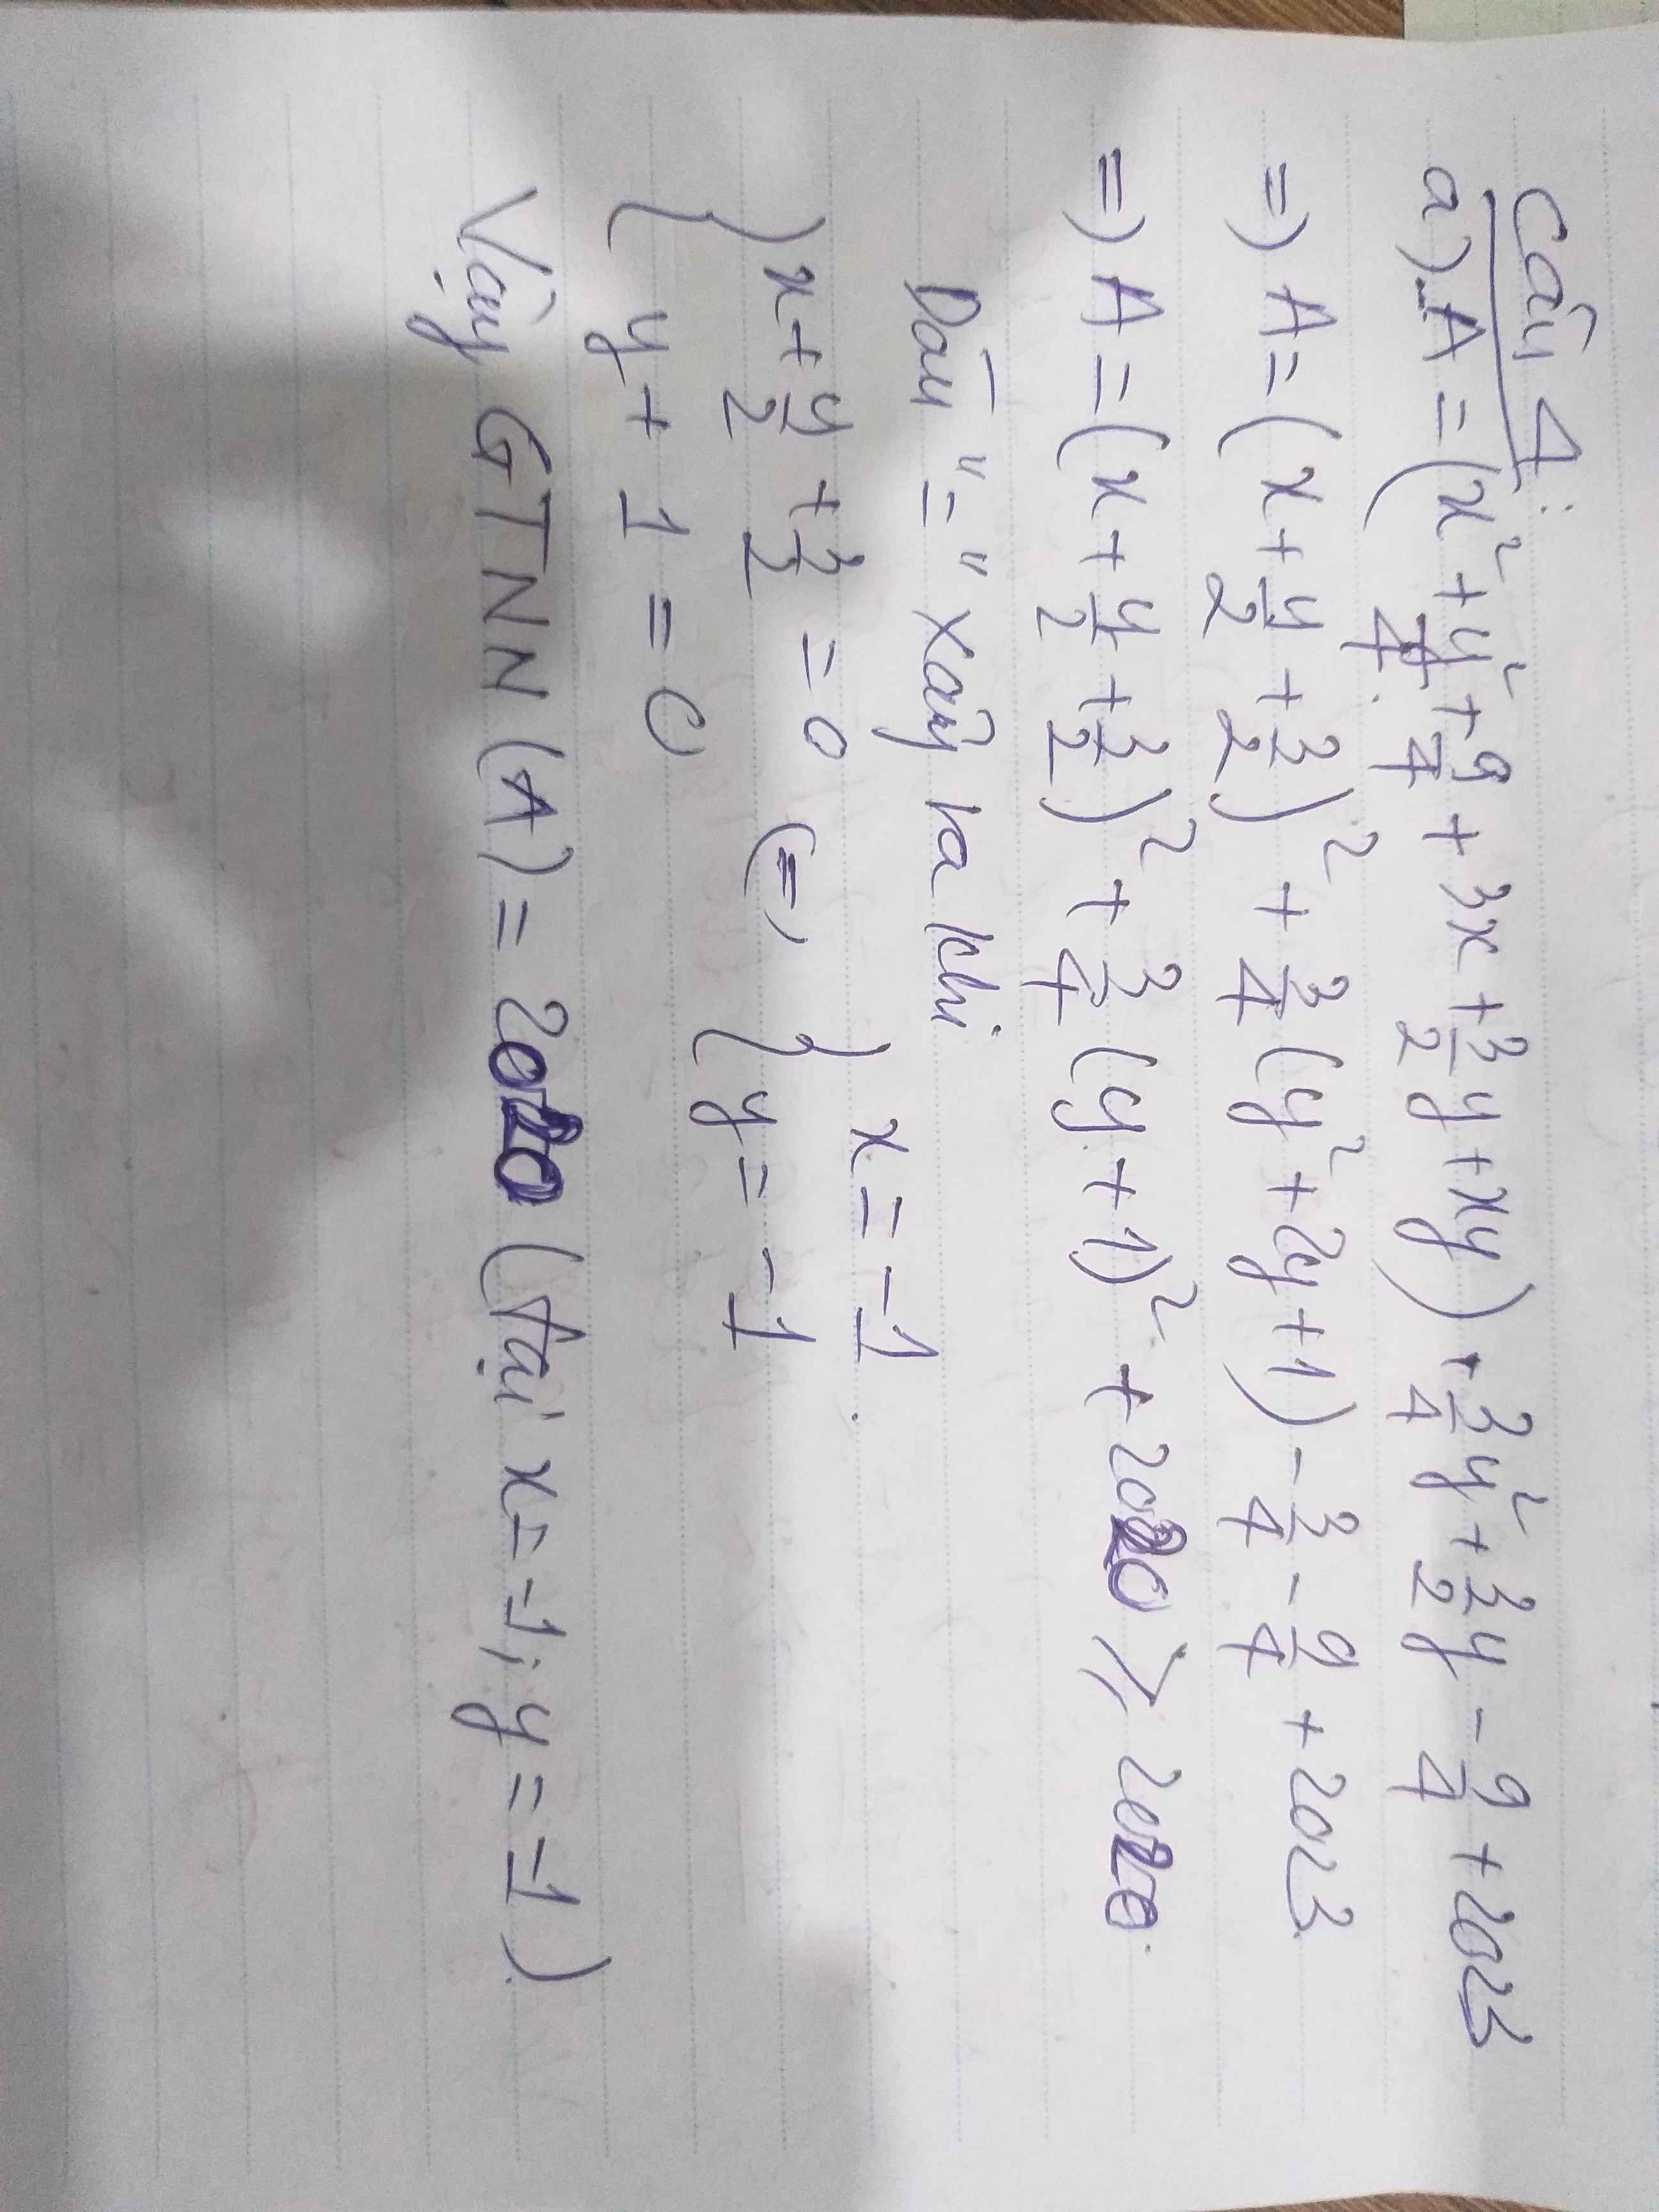 Câu 4:
a) A = (x² + y²/4 + 9/4 + 3x + 3/2 y + xy) + 3/4 y² + 3/2 y - 9/4 + 2023
=) A = (x + y/2 + 3/2)² + 3/4 (y² + 2y + 1) - 3/4 - 9/4 + 2023
=) A = (x + y/2 + 3/2)² + 3/4 (y + 1)² + 2020 ⩾ 2020.
Dấu "=" xảy ra khi
{ x + y/2 + 3/2 = 0 (=) { x = -1
y + 1 = 0 y = -1
Vậy GTNN (A) = 2020 (tại x = -1; y = -1)